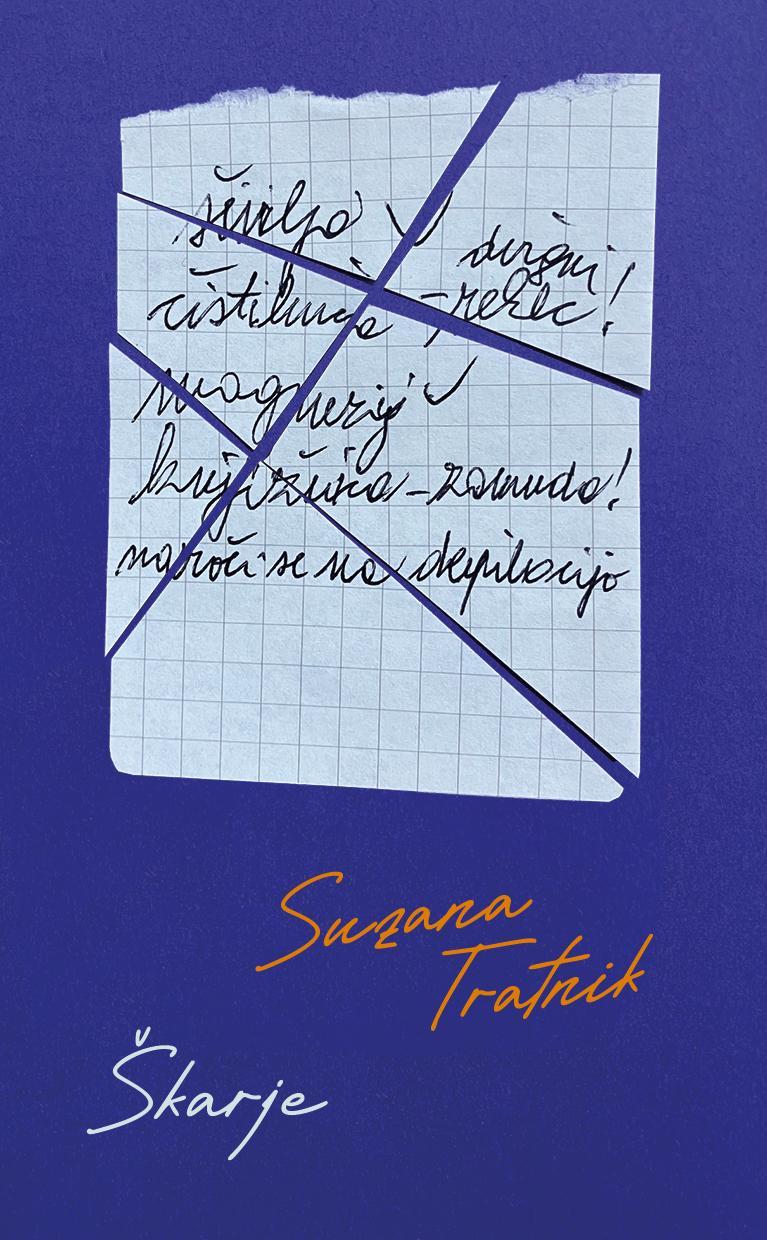 šivilja ✓
dvigni
čistilnica
magnezij ✓
knjižnica - zamuda!
naroči se na depilacijo
Suzana
Tratnik
Škarje